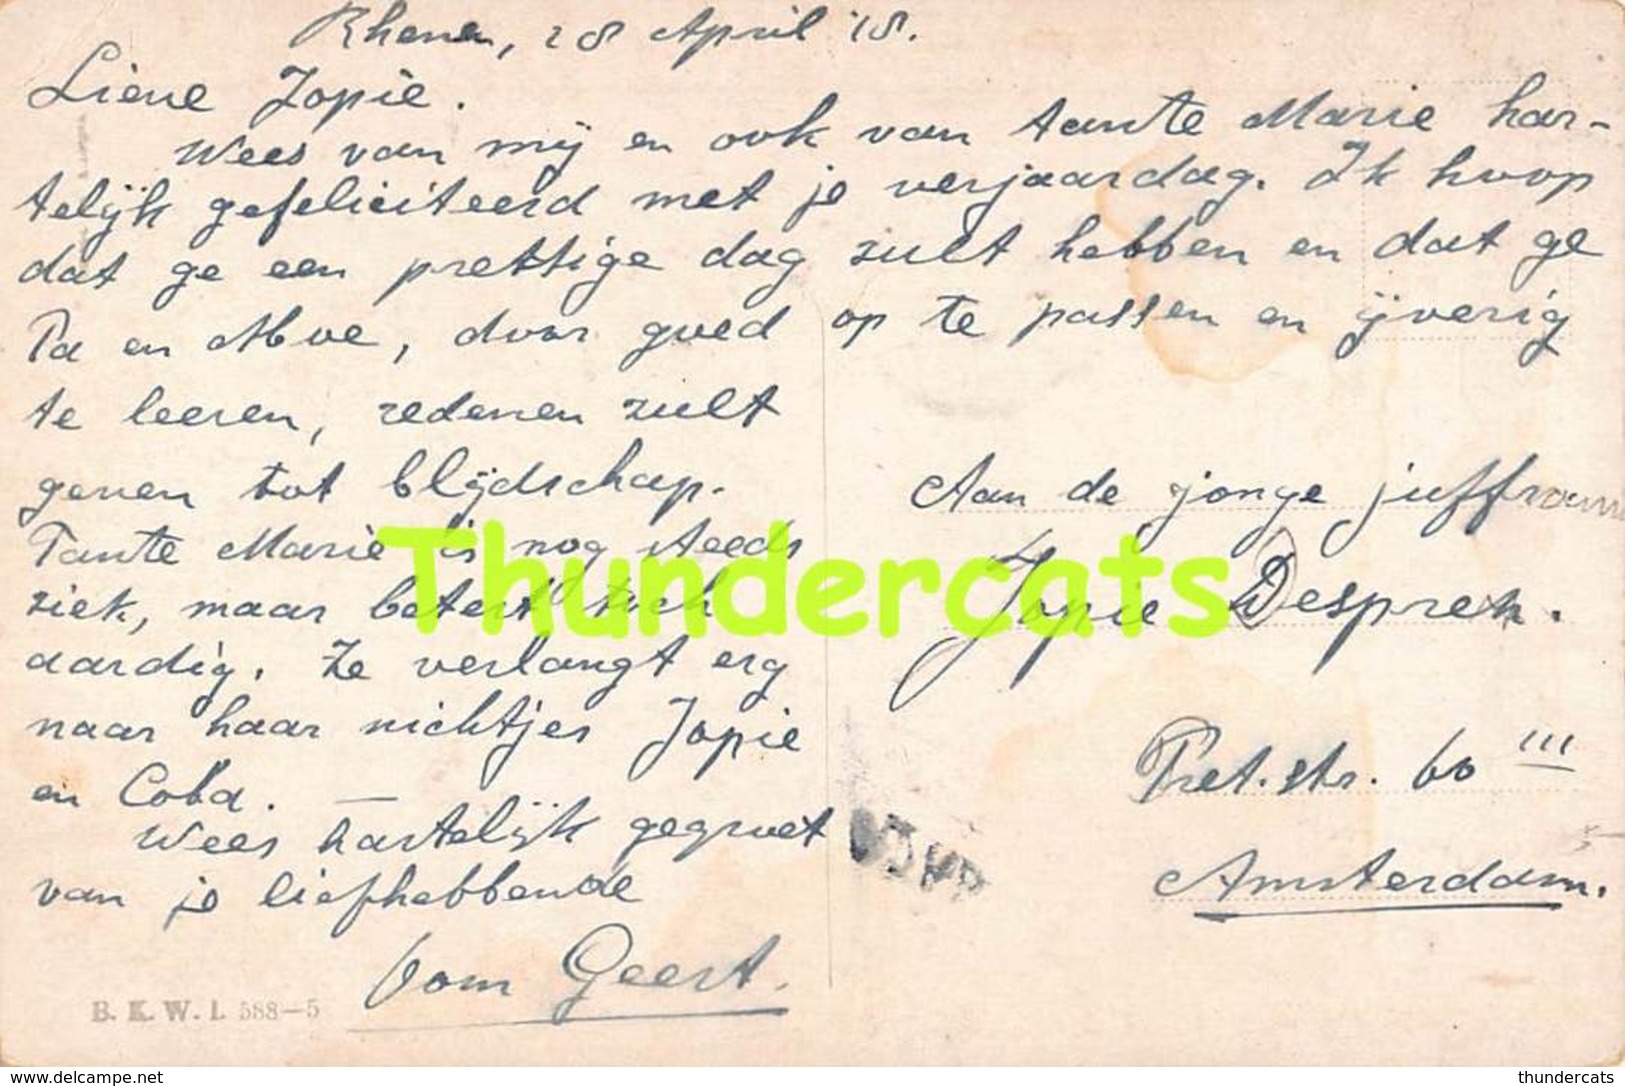 Rhenen, 28 April '18.
Lieve Jopie.
Wees van mij en ook van tante Marie har-
telijk gefeliciteerd met je verjaardag. Ik hoop
dat ge een prettige dag zult hebben en dat ge
Pa en Moe, door goed op te passen en ijverig
te leeren, redenen zult
geven tot blijdschap.
Tante Marie is nog steeds
ziek, maar betert toch
aardig. Ze verlangt erg
naar haar nichtjes Jopie
en Coba. —
Wees hartelijk gegroet
van je liefhebbende
Oom Geert.
Aan de jonge juffrouw
Jopie Despren.
Pret. str. 60 III
Amsterdam.
B. K. W. I. 588-5
Thundercats
www.delcampe.net
thundercats